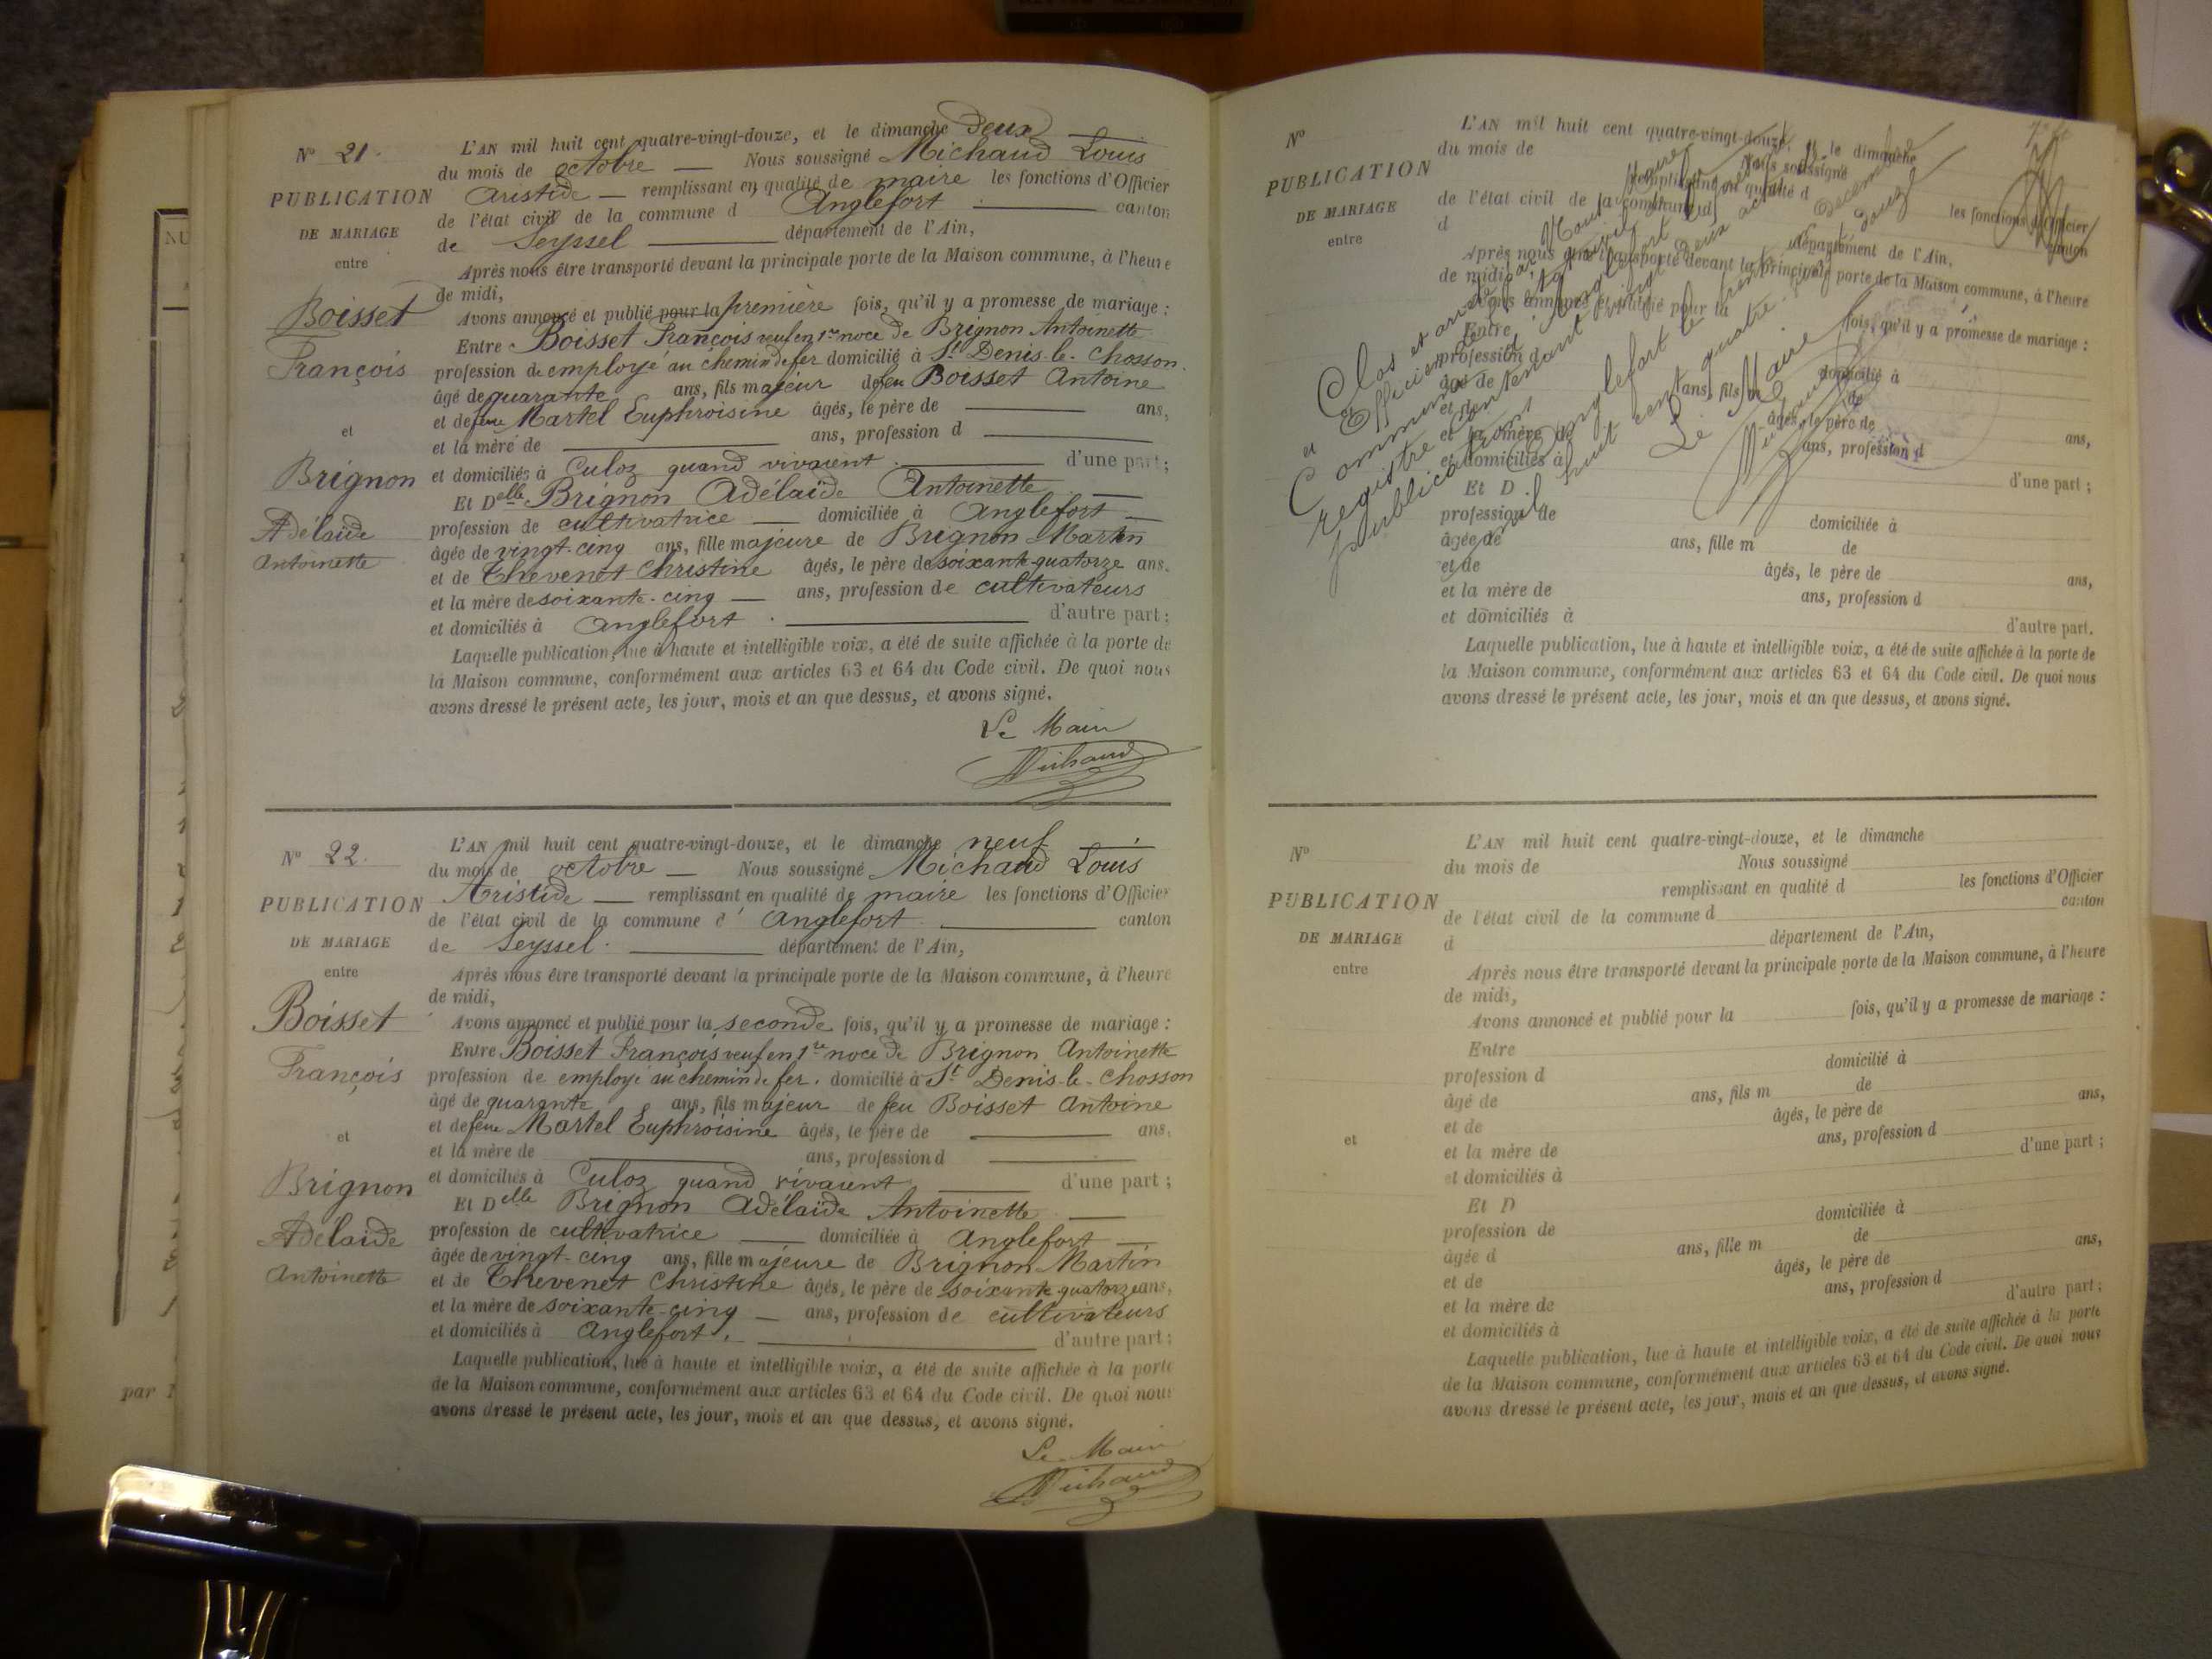 N° 21.
PUBLICATION
DE MARIAGE
entre
Boisset
François
et
Brignon
Adélaïde
Antoinette
L'AN mil huit cent quatre-vingt-douze, et le dimanche deux
du mois de octobre — Nous soussigné Michaud Louis
Aristide — remplissant en qualité de maire les fonctions d'Officier
de l'état civil de la commune d Anglefort canton
de Seyssel département de l'Ain,
Après nous être transporté devant la principale porte de la Maison commune, à l'heure
de midi,
Avons annoncé et publié pour la première fois, qu'il y a promesse de mariage :
Entre Boisset François veuf en 1re noce de Brignon Antoinette
profession de employé au chemin de fer domicilié à St Denis-le-Chosson.
âgé de quarante ans, fils majeur de feu Boisset Antoine
et de feue Martel Euphroisine âgés, le père de ans,
et la mère de ans, profession d
et domiciliés à Culoz quand vivaient. d'une part;
Et Delle Brignon Adélaïde Antoinette
profession de cultivatrice — domiciliée à Anglefort —
âgée de vingt-cinq ans, fille majeure de Brignon Martin
et de Thevenet Christine âgés, le père de soixante-quatorze ans.
et la mère de soixante-cinq — ans, profession de cultivateurs
et domiciliés à Anglefort. d'autre part;
Laquelle publication, lue à haute et intelligible voix, a été de suite affichée à la porte de
la Maison commune, conformément aux articles 63 et 64 du Code civil. De quoi nous
avons dressé le présent acte, les jour, mois et an que dessus, et avons signé.
Le Maire
Michaud
N° 22.
PUBLICATION
DE MARIAGE
entre
Boisset
François
et
Brignon
Adélaïde
Antoinette
L'AN mil huit cent quatre-vingt-douze, et le dimanche neuf
du mois de octobre — Nous soussigné Michaud Louis
Aristide — remplissant en qualité de maire les fonctions d'Officier
de l'état civil de la commune d' Anglefort canton
de Seyssel. département de l'Ain,
Après nous être transporté devant la principale porte de la Maison commune, à l'heure
de midi,
Avons annoncé et publié pour la seconde fois, qu'il y a promesse de mariage :
Entre Boisset François veuf en 1re noce de Brignon Antoinette
profession de employé au chemin de fer. domicilié à St Denis-le-Chosson
âgé de quarante ans, fils majeur de feu Boisset Antoine
et de feue Martel Euphroisine âgés, le père de ans,
et la mère de ans, profession d
et domiciliés à Culoz quand vivaient d'une part ;
Et Delle Brignon Adélaïde Antoinette
profession de cultivatrice — domiciliée à Anglefort —
âgée de vingt-cinq ans, fille majeure de Brignon Martin
et de Thevenet Christine âgés, le père de soixante-quatorze ans,
et la mère de soixante-cinq — ans, profession de cultivateurs
et domiciliés à Anglefort. d'autre part;
Laquelle publication, lue à haute et intelligible voix, a été de suite affichée à la porte
de la Maison commune, conformément aux articles 63 et 64 du Code civil. De quoi nous
avons dressé le présent acte, les jour, mois et an que dessus, et avons signé.
Le Maire
Michaud
par
N°
PUBLICATION
DE MARIAGE
entre
L'AN mil huit cent quatre-vingt-douze, et le dimanche
du mois de Nous soussigné
remplissant en qualité d les fonctions d'Officier
de l'état civil de la commune d canton
d département de l'Ain,
Après nous être transporté devant la principale porte de la Maison commune, à l'heure
de midi,
Avons annoncé et publié pour la fois, qu'il y a promesse de mariage :
Entre
profession d domicilié à
âgé de ans, fils m de
et de âgés, le père de ans,
et la mère de ans, profession d
et domiciliés à d'une part ;
Et D
profession de domiciliée à
âgée de ans, fille m de
et de âgés, le père de ans,
et la mère de ans, profession d
et domiciliés à d'autre part.
Laquelle publication, lue à haute et intelligible voix, a été de suite affichée à la porte de
la Maison commune, conformément aux articles 63 et 64 du Code civil. De quoi nous
avons dressé le présent acte, les jour, mois et an que dessus, et avons signé.
Clos et arrêté par Nous Maire
et Officier de l'état civil
Commune d'Anglefort
registre contenant vingt deux actes
publications
Anglefort le trente décembre
mil huit cent quatre-vingt douze
Le Maire
Michaud
N°
PUBLICATION
DE MARIAGE
entre
et
L'AN mil huit cent quatre-vingt-douze, et le dimanche
du mois de Nous soussigné
remplissant en qualité d les fonctions d'Officier
de l'état civil de la commune d canton
d département de l'Ain,
Après nous être transporté devant la principale porte de la Maison commune, à l'heure
de midi,
Avons annoncé et publié pour la fois, qu'il y a promesse de mariage :
Entre
profession d domicilié à
âgé de ans, fils m de
et de âgés, le père de ans,
et la mère de ans, profession d
et domiciliés à d'une part ;
Et D
profession de domiciliée à
âgée d ans, fille m de
et de âgés, le père de ans,
et la mère de ans, profession d
et domiciliés à d'autre part;
Laquelle publication, lue à haute et intelligible voix, a été de suite affichée à la porte
de la Maison commune, conformément aux articles 63 et 64 du Code civil. De quoi nous
avons dressé le présent acte, les jour, mois et an que dessus, et avons signé.